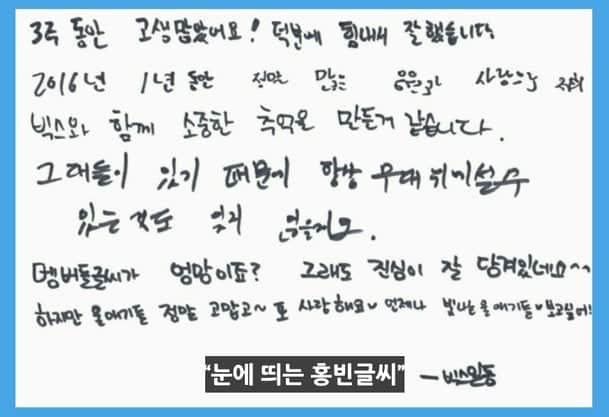 3주 동안 고생많았어요! 덕분에 힘내서 잘했습니다
2016년 1년 동안 정말 많은 응원과 사랑으로 저희
빅스와 함께 소중한 추억을 만든거 같습니다.
그대들이 있기 때문에 항상 무대 위에 설 수
있는 것도 잊지 않을게요.
멤버들글씨가 엉망이죠? 그래도 진심이 잘 담겨있네요~~
하지만 울애기들 정말 고맙고~ 또 사랑해요♥ 언제나 빛나는 울애기들♥보고싶어!
“눈에 띄는 홍빈글씨”
-빅스일동